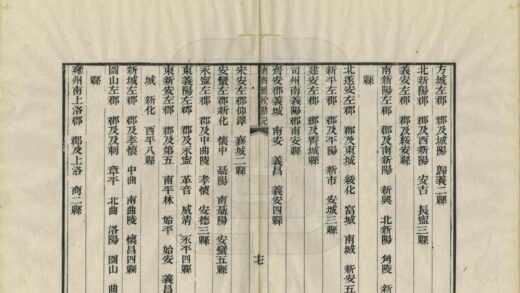 方城左郡 郡及城陽 歸義二縣
北新陽左郡 郡及西新陽 安吉 長寧三縣
義安左郡 郡及綏安縣
南新陽左郡 郡及南新陽 新興 北新陽 角陵 新
縣
北遂安左郡 郡及東城 綏化 富城 南城 新安五
新平左郡 郡及平陽 新市 安城三縣
建安左郡 郡及霄城縣
司州南義陽郡南安縣
齊安郡義城 南安 義昌 義安四縣
七
宋安左郡仰澤 襄城二縣
安蠻左郡新化 懷中 聶陽 南聶陽 安蠻五縣
永寧左郡 郡及中曲陵 孝懷 安德三縣
東義陽左郡 郡及永寧 革音 威清 永平四縣
東新安左郡 郡及第五 南平林 始平 始安 義昌
城 新化 西平八縣
新城左郡 郡及孝懷 中曲 南曲陵 懷昌四縣
圍山左郡 郡及及刺 章平 北曲 洛陽 圍山 曲
縣
雍州南上洛郡 郡及上洛 商二縣